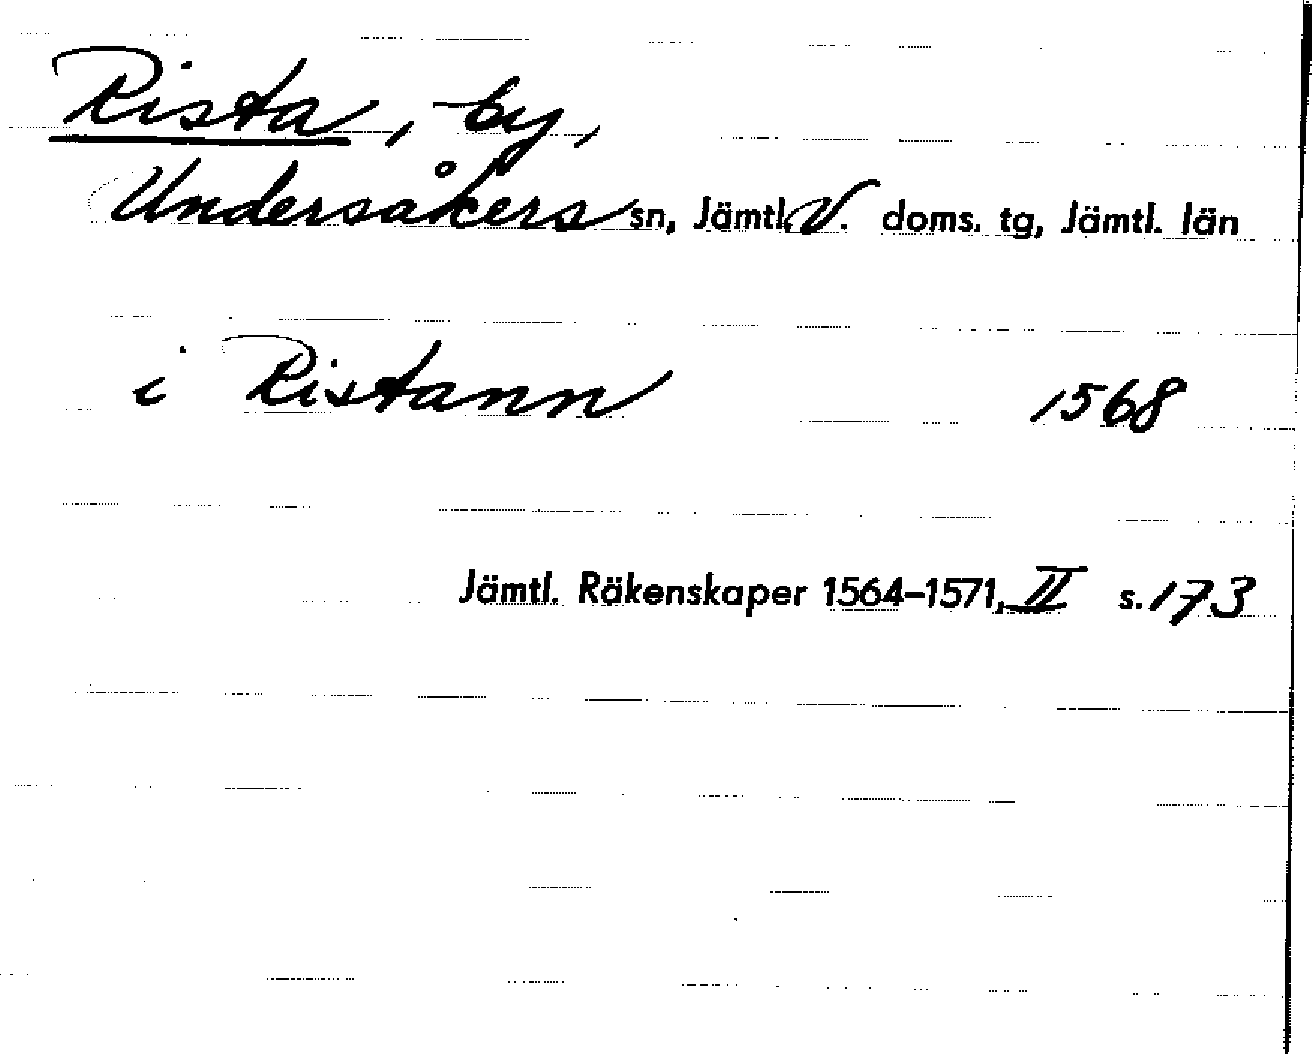 Rista, by,
Undersåkers sn, Jämtl. V. doms. tg, Jämtl. län
i Ristann 1568
Jämtl. Räkenskaper 1564–1571, II s. 173